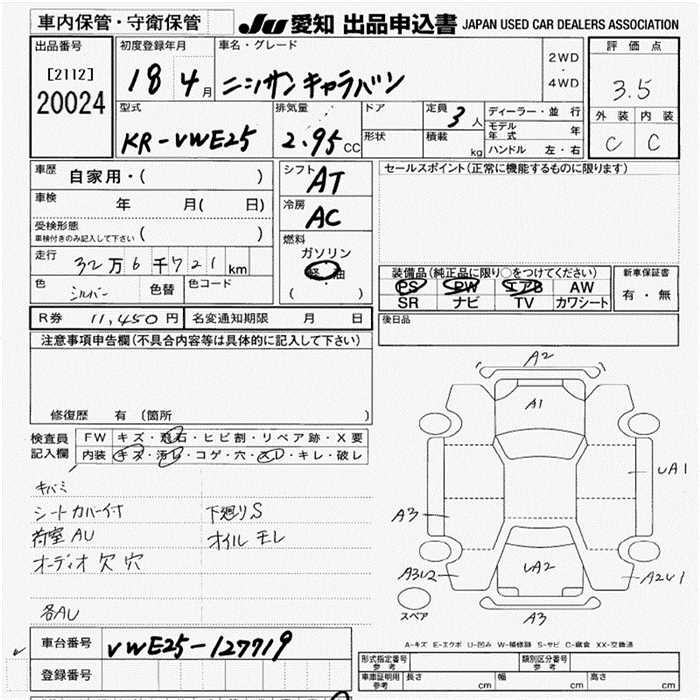 車内保管・守衛保管
JU 愛知 出品申込書 JAPAN USED CAR DEALERS ASSOCIATION
出品番号
[2112]
20024
初度登録年月
18 4月
車名・グレード
ニッサン キャラバン
2WD
・
4WD
評価点
3.5
外装 内装
C C
型式
KR-VWE25
排気量
2.95 CC
ドア
形状
定員 3人
積載 kg
ディーラー・並行
モデル年式 年
ハンドル 左・右
車歴 自家用・( )
車検 年 月( 日)
受検形態
車検付きのみ記入して下さい ( )
走行 32万6千721km
色 シルバー 色替 色コード
シフト AT
冷房 AC
燃料
ガソリン
軽・油
( ・ )
セールスポイント(正常に機能するものに限ります)
装備品(純正品に限り○をつけてください)
PS PW エアB AW
SR ナビ TV カワシート
新車保証書
有・無
R券 11,450円 名変通知期限 月 日
後日品
注意事項申告欄(不具合内容等は具体的に記入して下さい)
修復歴 有(箇所 )
検査員記入欄
FW キズ・飛石・ヒビ割・リペア跡・X要
内装 キズ・汚レ・コゲ・穴・スレ・キレ・破レ
キバミ
シートカバー付
荷室AU
オーディオ欠穴
各AU
下廻りS
オイルモレ
A2
A1
UA1
A3
A3U2
UA2
A2U1
A3
スペア
A-キズ E-エクボ U-凹み W-補修跡 S-サビ C-腐食 XX-交換済
車台番号 VWE25-127719
登録番号
形式指定番号 参考
類別区分番号 参考
車庫証明用 参考 長さ cm 幅 cm 高さ cm